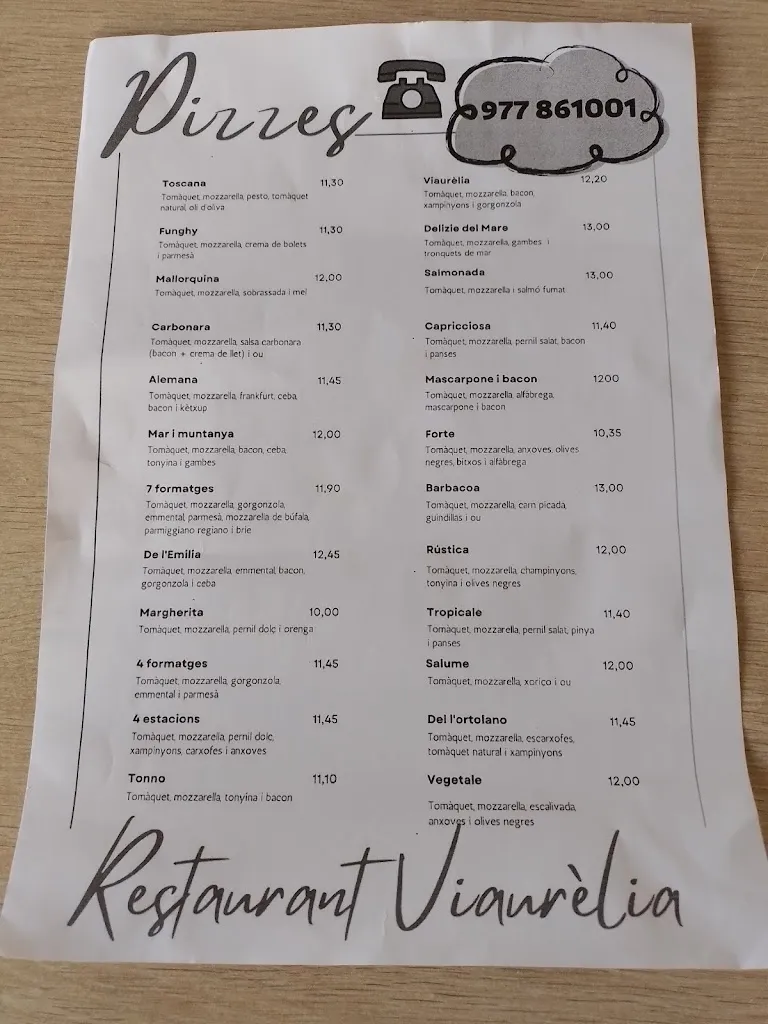 Pizzes
977 861001
Toscana 11,30
Tomàquet, mozzarella, pesto, tomàquet
natural, oli d'oliva
Funghy 11,30
Tomàquet, mozzarella, crema de bolets
i parmesà
Mallorquina 12,00
Tomàquet, mozzarella, sobrassada i mel
Carbonara 11,30
Tomàquet, mozzarella, salsa carbonara
(bacon + crema de llet) i ou
Alemana 11,45
Tomàquet, mozzarella, frankfurt, ceba,
bacon i kètxup
Mar i muntanya 12,00
Tomàquet, mozzarella, bacon, ceba,
tonyina i gambes
7 formatges 11,90
Tomàquet, mozzarella, gorgonzola,
emmental, parmesà, mozzarella de búfala,
parmiggiano regiano i brie
De l'Emilia 12,45
Tomàquet, mozzarella, emmental, bacon,
gorgonzola i ceba
Margherita 10,00
Tomàquet, mozzarella, pernil dolç i orenga
4 formatges 11,45
Tomàquet, mozzarella, gorgonzola,
emmental i parmesà
4 estacions 11,45
Tomàquet, mozzarella, pernil dolç,
xampinyons, carxofes i anxoves
Tonno 11,10
Tomàquet, mozzarella, tonyina i bacon
Viaurèlia 12,20
Tomàquet, mozzarella, bacon,
xampinyons i gorgonzola
Delizie del Mare 13,00
Tomàquet, mozzarella, gambes i
tronquets de mar
Salmonada 13,00
Tomàquet, mozzarella i salmó fumat
Capricciosa 11,40
Tomàquet, mozzarella, pernil salat, bacon
i panses
Mascarpone i bacon 1200
Tomàquet, mozzarella, alfàbrega,
mascarpone i bacon
Forte 10,35
Tomàquet, mozzarella, anxoves, olives
negres, bitxos i alfàbrega
Barbacoa 13,00
Tomàquet, mozzarella, carn picada,
guindillas i ou
Rústica 12,00
Tomàquet, mozzarella, champinyons,
tonyina i olives negres
Tropicale 11,40
Tomàquet, mozzarella, pernil salat, pinya
i panses
Salume 12,00
Tomàquet, mozzarella, xoriço i ou
Del l'ortolano 11,45
Tomàquet, mozzarella, escarxofes,
tomàquet natural i xampinyons
Vegetale 12,00
Tomàquet, mozzarella, escalivada,
anxoves i olives negres
Restaurant Viaurèlia